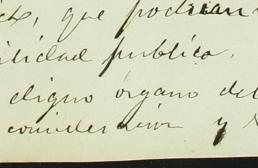 que podrian
ilidad publica.
digno órgano del
consideracion y